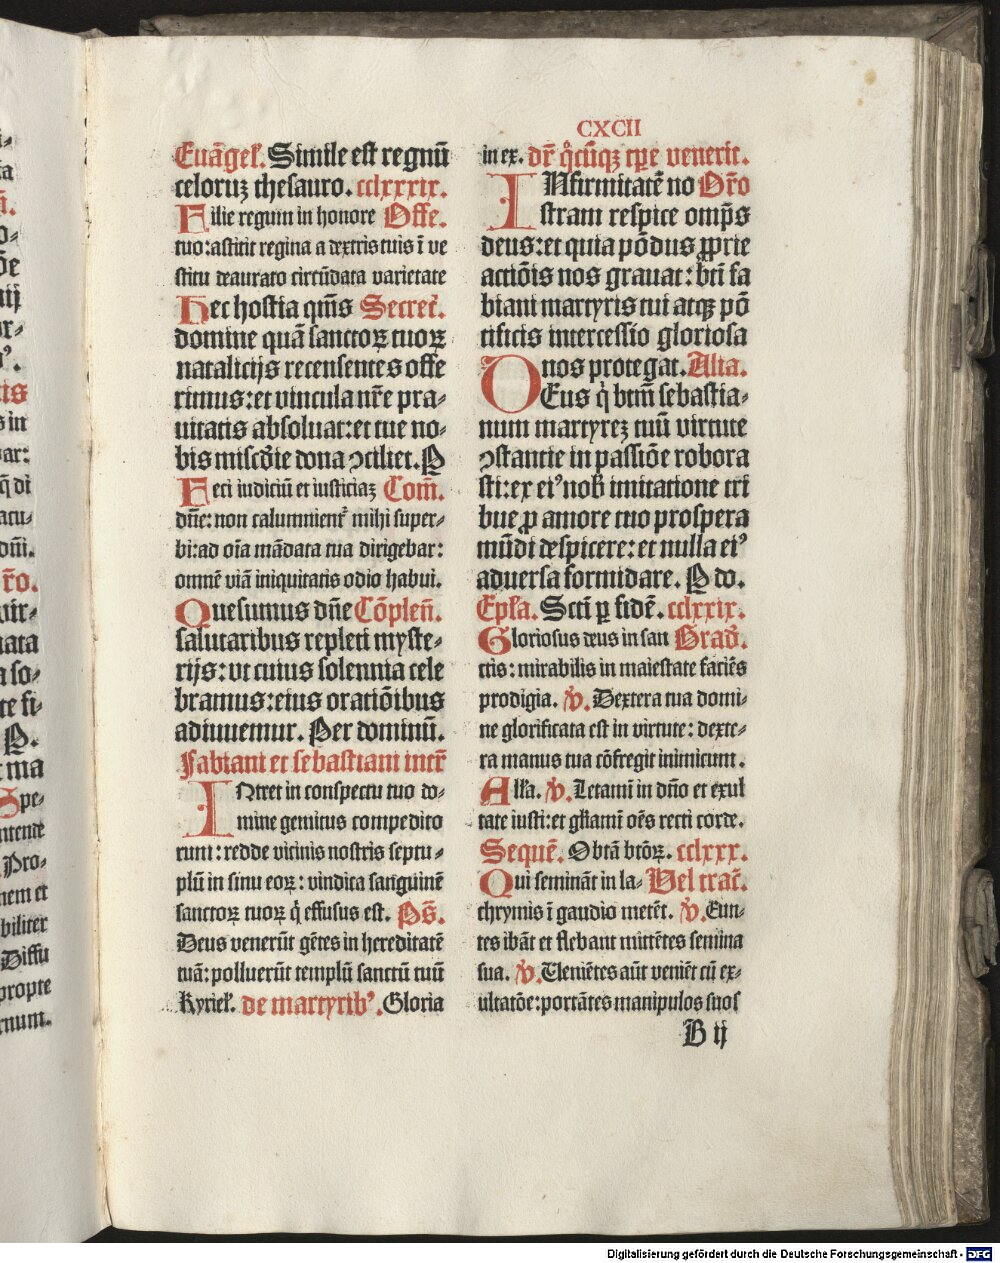 CXCII
Euāgel. Simile est regnū
celoruz thesauro. cclxxxix.
Filie regum in honore Offe.
tuo: astitit regina a dextris tuis ī ve
stitu deaurato circūdata varietate
Hec hostia qm̄s Secret.
domine quā sanctoꝝ tuoꝝ
natalicijs recensentes offe
rimus: et vincula nr̄e pra-
uitatis absoluat: et tue no-
bis misc̄die dona ꝯciliet. P
Feci iudiciū et iusticiaz Com̄.
dn̄e: non calumnient᷑ mihi super-
bi: ad oīa mādata tua dirigebar:
omnē viā iniquitatis odio habui.
Quesumus dn̄e Cōplen̄.
salutaribus repleti myste-
rijs: vt cuius solennia cele
bramus: eius oratiōibus
adiuuemur. Per dominū.
Fabiani et sebastiani mr̄
INtret in conspectu tuo do-
mine gemitus compedito
rum: redde vicinis nostris septu-
plū in sinu eoꝝ: vindica sanguinē
sanctoꝝ tuoꝝ q̇ effusus est. Ps̄.
Deus venerūt gētes in hereditatē
tuā: polluerūt templū sanctū tuū
Kyriel. de martyrib᾿. Gloria
in ex. dr̄ q̊cūqꝫ tpe venerit.
INfirmitatē no Or̄o
stram respice omp̄s
deus: et quia pōdus ꝓprie
actiōis nos grauat: btī fa
biani martyris tui atqꝫ pō
tificis intercessio gloriosa
nos protegat. Alia.
DEus q̇ btm̄ sebastia-
num martyrez tuū virtute
ꝯstantie in passiōe robora
sti: ex ei᾿ nob̄ imitatione tri
bue ꝓ amore tuo prospera
mūdi despicere: et nulla ei᾿
aduersa formidare. P do.
Epl̄a. Scti ꝑ fidē. cclxxix.
Gloriosus deus in san Grad̄.
ctis: mirabilis in maiestate faciēs
prodigia. ℣. Dextera tua domi-
ne glorificata est in virtute: dexte-
ra manus tua cōfregit inimicum.
All̄a. ℣. Letamī in dn̄o et exul
tate iusti: et gl̄iamī oēs recti corde.
Sequē. Obtā btōꝝ. cclxxx.
Qui semināt in la- Vel tract̄.
chrymis ī gaudio metēt. ℣. Eun-
tes ibāt et flebant mittētes semina
sua. ℣. Veniētes aūt veniēt cū ex-
ultatōe: portātes manipulos suos
B ij
Digitalisierung gefördert durch die Deutsche Forschungsgemeinschaft - DFG